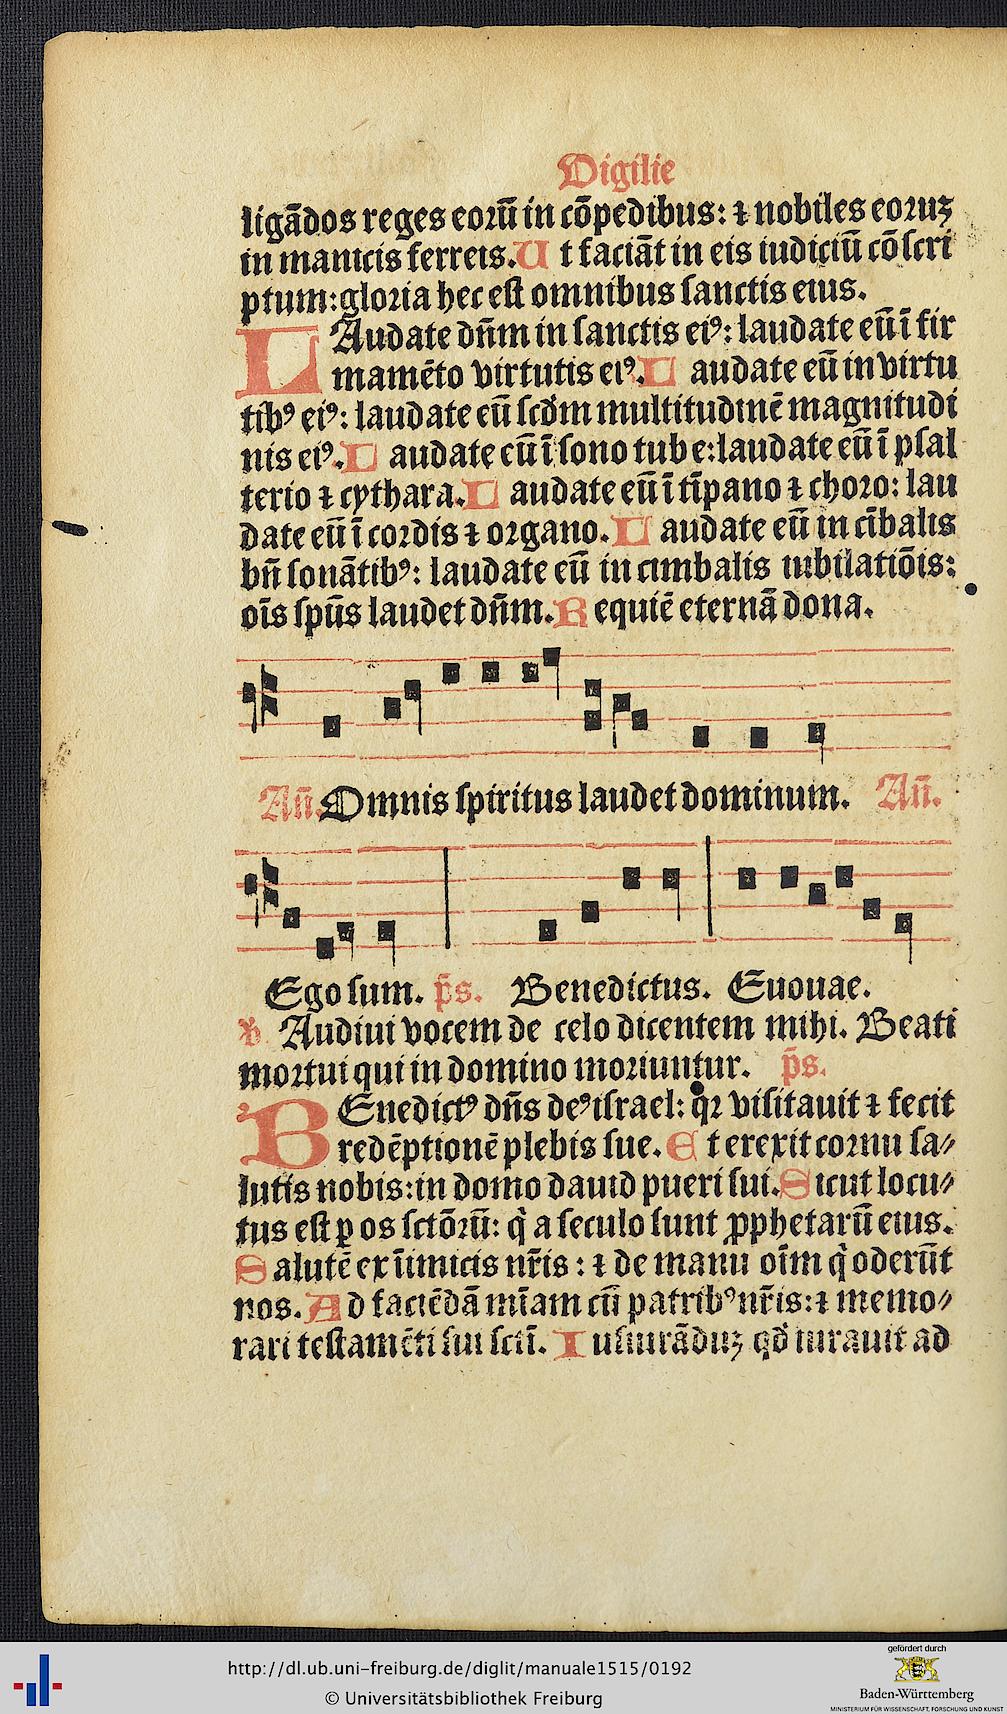 Vigilie
ligādos reges eorū in cōpedibus: ⁊ nobiles eoruꝫ
in manicis ferreis. Ut faciāt in eis iudiciū cōscri
ptum: gloria hec est omnibus sanctis eius.
LAudate dn̄m in sanctis eiꝰ: laudate eū ī fir
mamēto virtutis eiꝰ. Laudate eū in virtu
tibꝰ eiꝰ: laudate eū scd̄m multitudinē magnitudi
nis eiꝰ. Laudate eū ī sono tube: laudate eū ī psal
terio ⁊ cythara. Laudate eū ī tīpano ⁊ choro: lau
date eū ī cordis ⁊ organo. Laudate eū in cībalis
bn̄ sonātibꝰ: laudate eū in cimbalis iubilatiōis:
oīs sp̄us laudet dn̄m. Requiē eternā dona.
An̄. Omnis spiritus laudet dominum. An̄.
Ego sum. p̄s. Benedictus. Euouae.
℣ Audiui vocem de celo dicentem mihi. Beati
mortui qui in domino moriuntur. p̄s.
BEnedictꝰ dn̄s deꝰ israel: qꝛ visitauit ⁊ fecit
redēptionē plebis sue. Et erexit cornu sa⸗
lutis nobis: in domo dauid pueri sui. Sicut locu⸗
tus est ꝑ os sctōrū: q̇ a seculo sunt ꝓphetarū eius.
Salutē ex inimicis nr̄is: ⁊ de manu oīm q̇ oderūt
nos. Ad faciēdā mīam cū patribꝰ nr̄is: ⁊ memo⸗
rari testamēti sui sctī. Iusiurāduꝫ qd̄ iurauit ad
http://dl.ub.uni-freiburg.de/diglit/manuale1515/0192
© Universitätsbibliothek Freiburg
gefördert durch
Baden-Württemberg
MINISTERIUM FÜR WISSENSCHAFT, FORSCHUNG UND KUNST